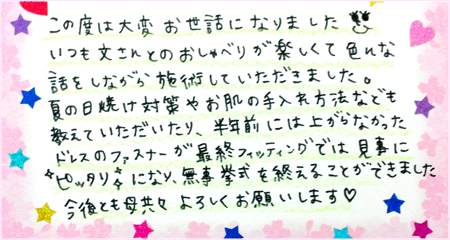 この度は大変お世話になりました
いつも文さんとのおしゃべりが楽しくて色んな
話をしながら施術していただきました。
夏の日焼け対策やお肌の手入れ方法なども
教えていただいたり、半年前には上がらなかった
ドレスのファスナーが最終フィッティングでは見事に
ピッタリになり、無事挙式を終えることができました
今後とも母共々よろしくお願いします♡